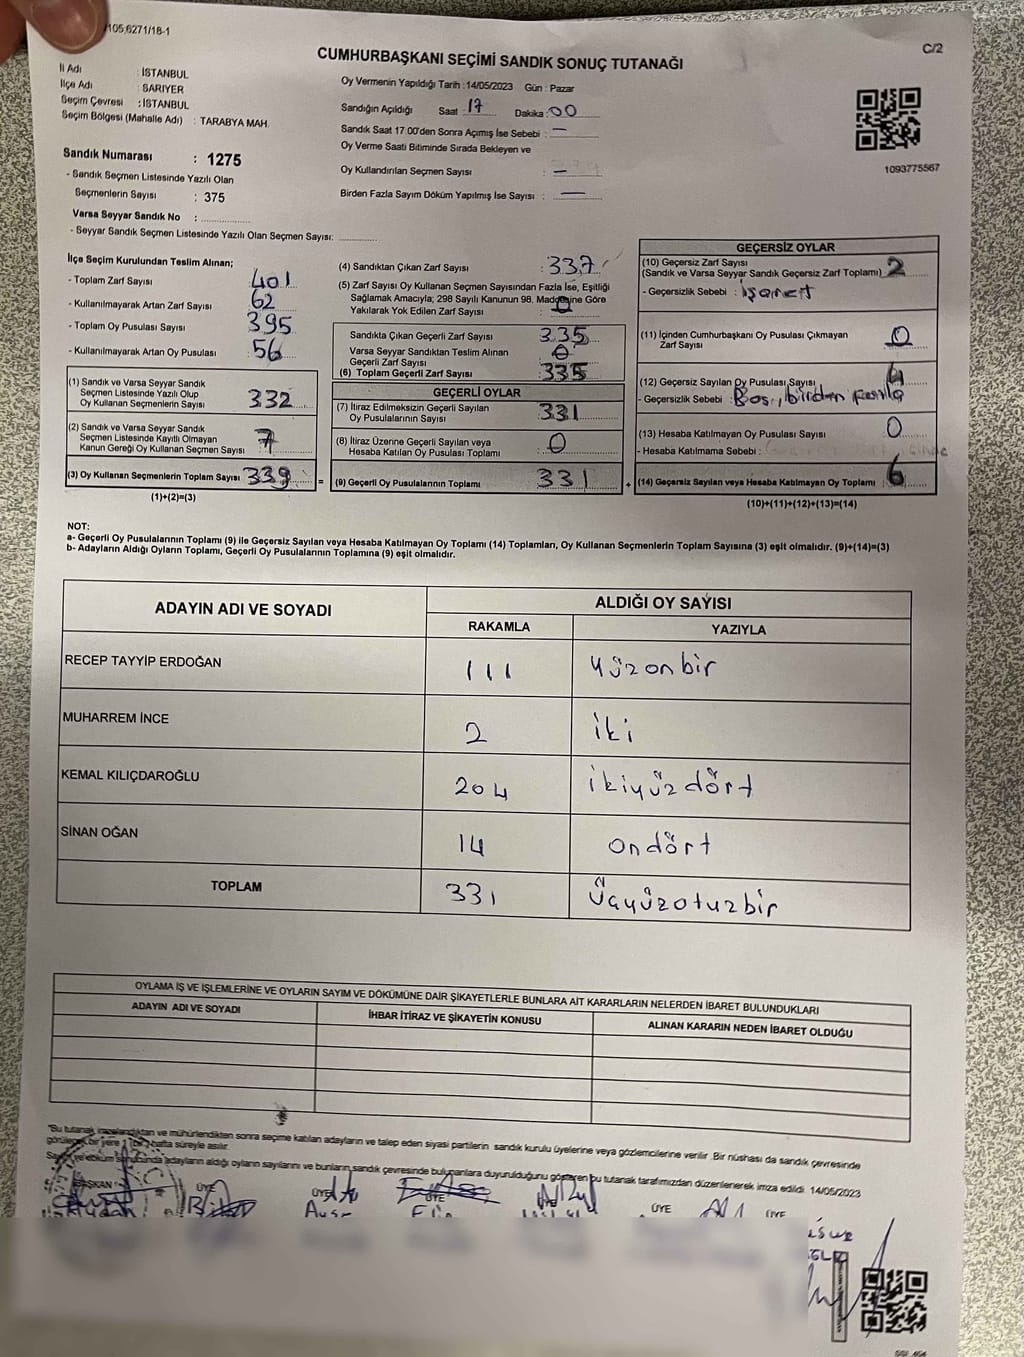 /105,6271/18-1
C/2
CUMHURBAŞKANI SEÇİMİ SANDIK SONUÇ TUTANAĞI
İl Adı : İSTANBUL
İlçe Adı : SARIYER
Seçim Çevresi : İSTANBUL
Seçim Bölgesi (Mahalle Adı) : TARABYA MAH.
Oy Vermenin Yapıldığı Tarih : 14/05/2023 Gün : Pazar
Sandığın Açıldığı Saat : 17 Dakika : 00
Sandık Saat 17:00'den Sonra Açımış İse Sebebi : —
Oy Verme Saati Bitiminde Sırada Bekleyen ve
Oy Kullandırılan Seçmen Sayısı : —
Birden Fazla Sayım Döküm Yapılmış İse Sayısı : —
1093775567
Sandık Numarası : 1275
- Sandık Seçmen Listesinde Yazılı Olan
Seçmenlerin Sayısı : 375
Varsa Seyyar Sandık No :
- Seyyar Sandık Seçmen Listesinde Yazılı Olan Seçmen Sayısı:
İlçe Seçim Kurulundan Teslim Alınan;
- Toplam Zarf Sayısı 401
- Kullanılmayarak Artan Zarf Sayısı 62
- Toplam Oy Pusulası Sayısı 395
- Kullanılmayarak Artan Oy Pusulası 56
(1) Sandık ve Varsa Seyyar Sandık
Seçmen Listesinde Yazılı Olup
Oy Kullanan Seçmenlerin Sayısı 332
(2) Sandık ve Varsa Seyyar Sandık
Seçmen Listesinde Kayıtlı Olmayan
Kanun Gereği Oy Kullanan Seçmen Sayısı 7
(3) Oy Kullanan Seçmenlerin Toplam Sayısı 339
(1)+(2)=(3)
(4) Sandıktan Çıkan Zarf Sayısı : 337
(5) Zarf Sayısı Oy Kullanan Seçmen Sayısından Fazla İse, Eşitliği
Sağlamak Amacıyla; 298 Sayılı Kanunun 98. Maddesine Göre
Yakılarak Yok Edilen Zarf Sayısı : 0
Sandıkta Çıkan Geçerli Zarf Sayısı 335
Varsa Seyyar Sandıktan Teslim Alınan
Geçerli Zarf Sayısı 0
(6) Toplam Geçerli Zarf Sayısı 335
GEÇERLİ OYLAR
(7) İtiraz Edilmeksizin Geçerli Sayılan
Oy Pusulalarının Sayısı 331
(8) İtiraz Üzerine Geçerli Sayılan veya
Hesaba Katılan Oy Pusulası Toplamı 0
= (9) Geçerli Oy Pusulalarının Toplamı 331 +
GEÇERSİZ OYLAR
(10) Geçersiz Zarf Sayısı
(Sandık ve Varsa Seyyar Sandık Geçersiz Zarf Toplamı) 2
- Geçersizlik Sebebi : işaret
(11) İçinden Cumhurbaşkanı Oy Pusulası Çıkmayan
Zarf Sayısı 0
(12) Geçersiz Sayılan Oy Pusulası Sayısı 4
- Geçersizlik Sebebi : Boş, birden fazla
(13) Hesaba Katılmayan Oy Pusulası Sayısı 0
- Hesaba Katılmama Sebebi :
(14) Geçersiz Sayılan veya Hesaba Katılmayan Oy Toplamı : 6
(10)+(11)+(12)+(13)=(14)
NOT:
a- Geçerli Oy Pusulalarının Toplamı (9) ile Geçersiz Sayılan veya Hesaba Katılmayan Oy Toplamı (14) Toplamları, Oy Kullanan Seçmenlerin Toplam Sayısına (3) eşit olmalıdır. (9)+(14)=(3)
b- Adayların Aldığı Oyların Toplamı, Geçerli Oy Pusulalarının Toplamına (9) eşit olmalıdır.
ADAYIN ADI VE SOYADI ALDIĞI OY SAYISI
RAKAMLA YAZIYLA
RECEP TAYYİP ERDOĞAN 111 Yüzonbir
MUHARREM İNCE 2 iki
KEMAL KILIÇDAROĞLU 204 ikiyüzdört
SİNAN OĞAN 14 ondört
TOPLAM 331 Üçyüzotuzbir
OYLAMA İŞ VE İŞLEMLERİNE VE OYLARIN SAYIM VE DÖKÜMÜNE DAİR ŞİKAYETLERLE BUNLARA AİT KARARLARIN NELERDEN İBARET BULUNDUKLARI
ADAYIN ADI VE SOYADI İHBAR İTİRAZ VE ŞİKAYETİN KONUSU ALINAN KARARIN NEDEN İBARET OLDUĞU
"Bu tutanak imzalandıktan ve mühürlendikten sonra seçime katılan adayların ve talep eden siyasi partilerin sandık kurulu üyelerine veya gözlemcilerine verilir. Bir nüshası da sandık çevresinde
görülecek bir yere 1 (bir) hafta süreyle asılır.
Sayım ve döküm sonucunda adayların aldığı oyların sayılarını ve bunların sandık çevresinde bulunanlara duyurulduğunu gösteren bu tutanak tarafımızdan düzenlenerek imza edildi. 14/05/2023
BAŞKAN ÜYE ÜYE ÜYE ÜYE ÜYE ÜYE